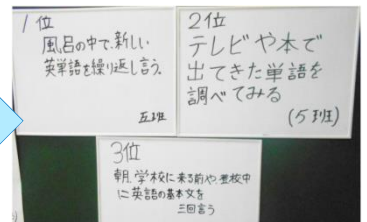 1位
風呂の中で、新しい
英単語を繰り返し言う。
五班
2位
テレビや本で
出てきた単語を
調べてみる
(5班)
3位
朝、学校に来る前や登校中
に英語の基本文を
三回言う